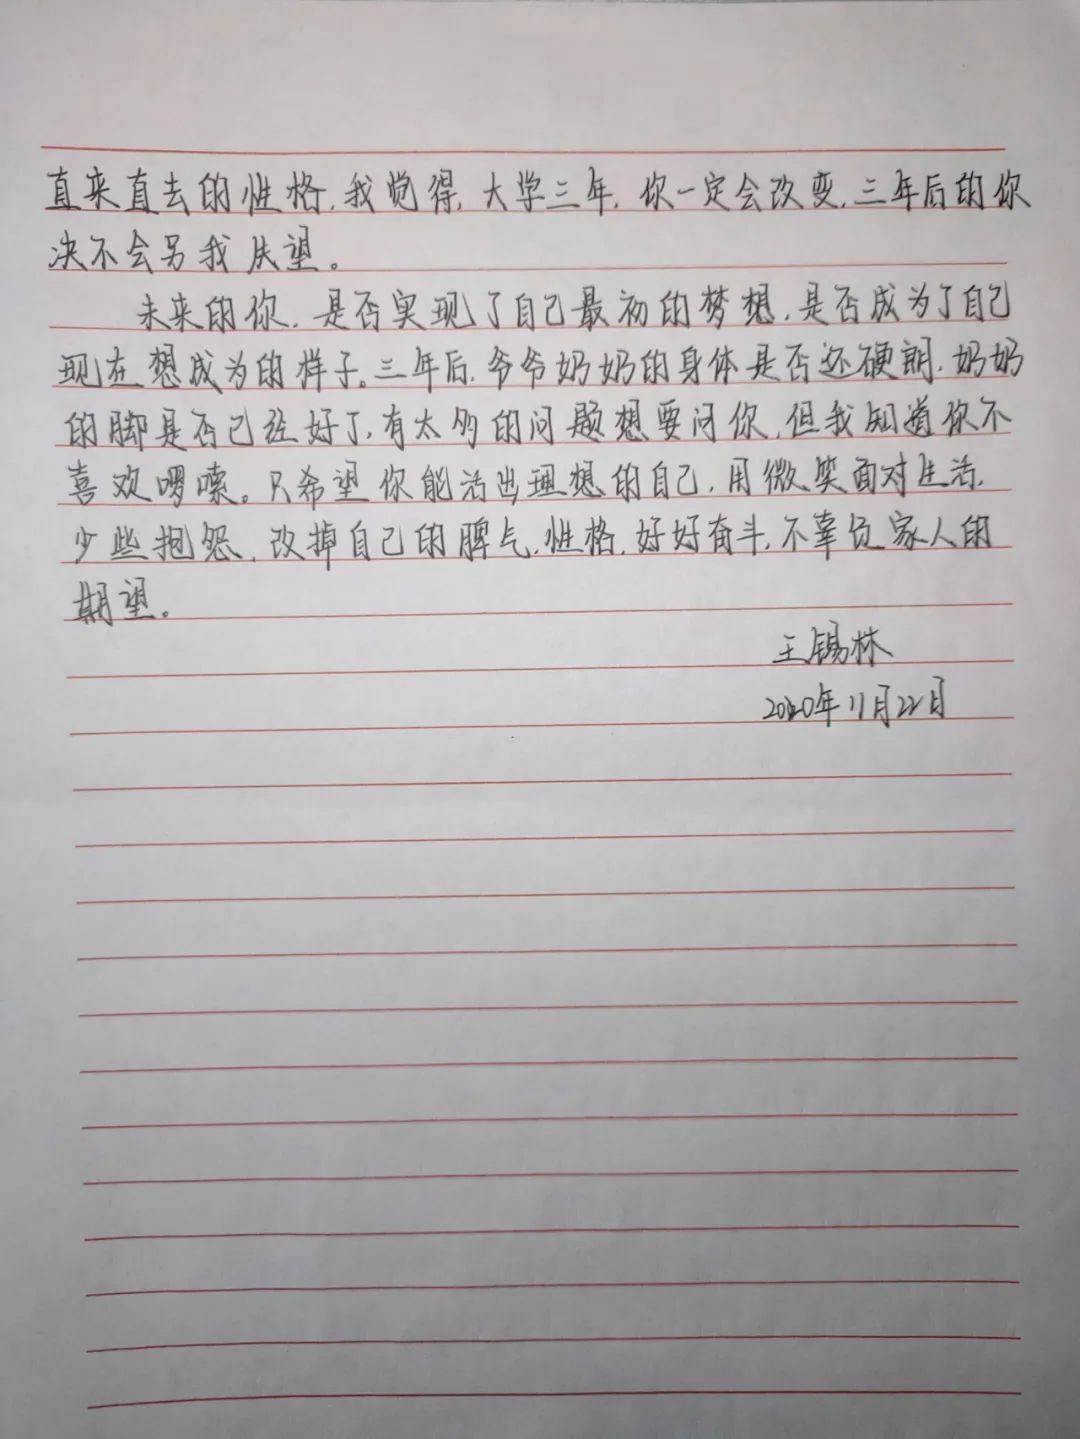 直来直去的性格，我觉得，大学三年，你一定会改变，三年后的你
决不会另我失望。
未来的你，是否实现了自己最初的梦想，是否成为了自己
现在想成为的样子。三年后，爷爷奶奶的身体是否还硬朗，奶奶
的脚是否已经好了，有太多的问题想要问你，但我知道你不
喜欢啰嗦。只希望你能活出理想的自己，用微笑面对生活，
少些抱怨，改掉自己的脾气，性格，好好奋斗，不辜负家人的
期望。
王锡林
2020年11月22日